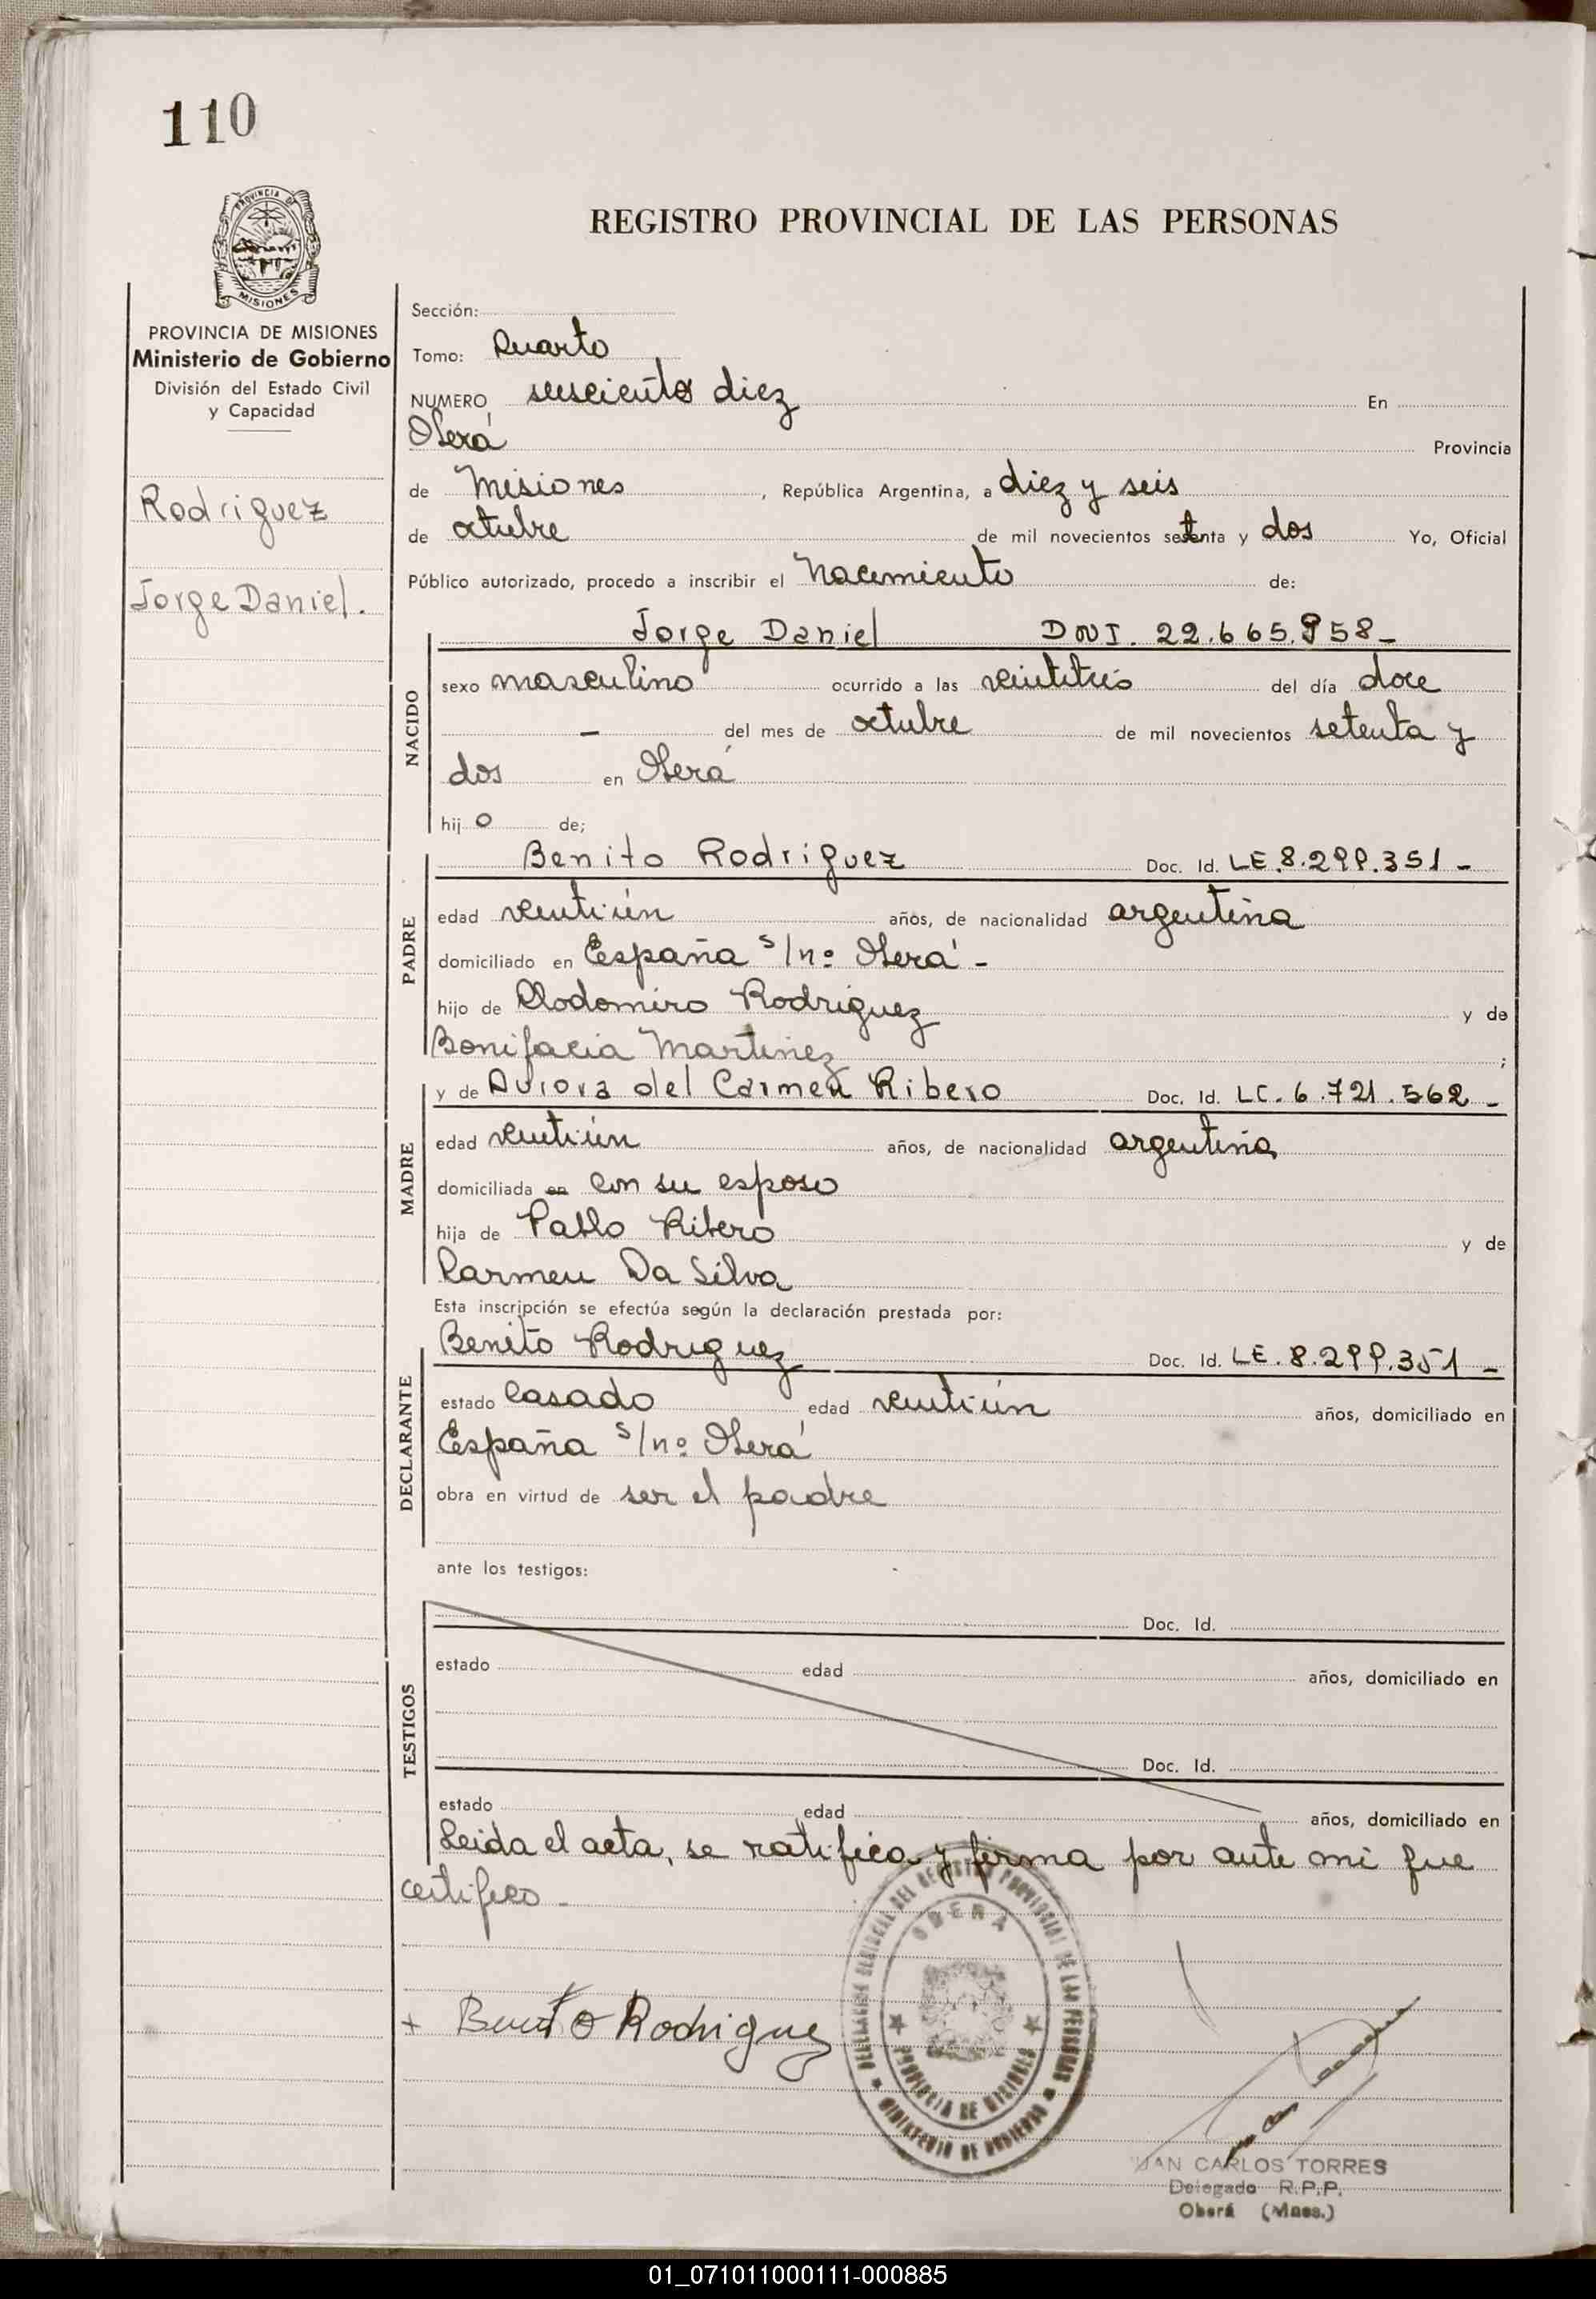 110
PROVINCIA DE
MISIONES
PROVINCIA DE MISIONES
Ministerio de Gobierno
División del Estado Civil
y Capacidad
Rodriguez
Jorge Daniel.
REGISTRO PROVINCIAL DE LAS PERSONAS
Sección:
Tomo: Cuarto
NUMERO seiscientos diez En
Oberá Provincia
de Misiones, República Argentina, a diez y seis
de octubre de mil novecientos setenta y dos Yo, Oficial
Público autorizado, procedo a inscribir el Nacimiento de:
NACIDO
Jorge Daniel DNI. 22.665.958-
sexo masculino ocurrido a las veintitrés del día doce
- del mes de octubre de mil novecientos setenta y
dos en Oberá
hijo de;
PADRE
Benito Rodriguez Doc. Id. LE.8.299.351-
edad veintiún años, de nacionalidad argentina
domiciliado en España s/nº Oberá-
hijo de Clodomiro Rodriguez y de
Bonifacia Martinez;
MADRE
y de Aurora del Carmen Ribero Doc. Id. LC.6.721.562-
edad veintiún años, de nacionalidad argentina
domiciliada en con su esposo
hija de Pablo Ribero y de
Carmen Da Silva
Esta inscripción se efectúa según la declaración prestada por:
DECLARANTE
Benito Rodriguez Doc. Id. LE.8.299.351-
estado casado edad veintiún años, domiciliado en
España s/nº Oberá
obra en virtud de ser el padre
ante los testigos:
TESTIGOS
Doc. Id.
estado edad años, domiciliado en
Doc. Id.
estado edad años, domiciliado en
Leida el acta, se ratifica y firma por ante mi que
certifico-
+ Benito Rodriguez
DELEGACION SECCIONAL DEL REGISTRO PROVINCIAL DE LAS PERSONAS
OBERA
PROVINCIA DE MISIONES
MINISTERIO DE GOBIERNO
JUAN CARLOS TORRES
Delegado R.P.P.
Oberá (Mnes.)
01_071011000111-000885